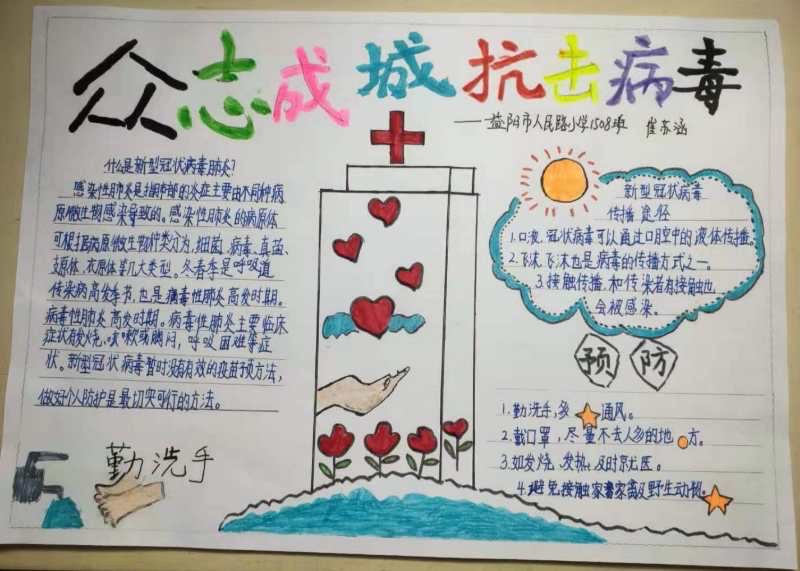 众志成城抗击病毒
——益阳市人民路小学1508班 崔苏涵
什么是新型冠状病毒肺炎?
感染性肺炎是指肺部的炎症主要由不同种病
原微生物感染导致的。感染性肺炎的病原体
可根据病原微生物种类分为,细菌、病毒、真菌、
支原体,衣原体等几大类型。冬春季是呼吸道
传染病高发季节,也是病毒性肺炎高发时期。
病毒性肺炎高发时期。病毒性肺炎主要临床
症状有发烧,咳嗽或胸闷,呼吸困难等症
状。新型冠状病毒暂时没有有效的疫苗预方法,
做好个人防护是最切实可行的方法。
勤洗手
新型冠状病毒
传播途径
1.口液,冠状病毒可以通过口腔中的液体传播。
2.飞沫,飞沫也是病毒的传播方式之一。
3.接触传播,和传染者有接触也
会被感染。
预防
1.勤洗手,多通风。
2.戴口罩,尽量不去人多的地方。
3.如发烧、发热,及时就医。
4.避免接触家禽家畜及野生动物。